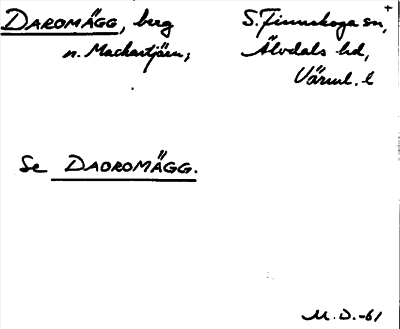 DAROMÄGG, berg
n. Mackartjärn;
S. Finnskoga sn,
Älvdals hd,
Värml. l
Se DADROMÄGG.
M. D.-61